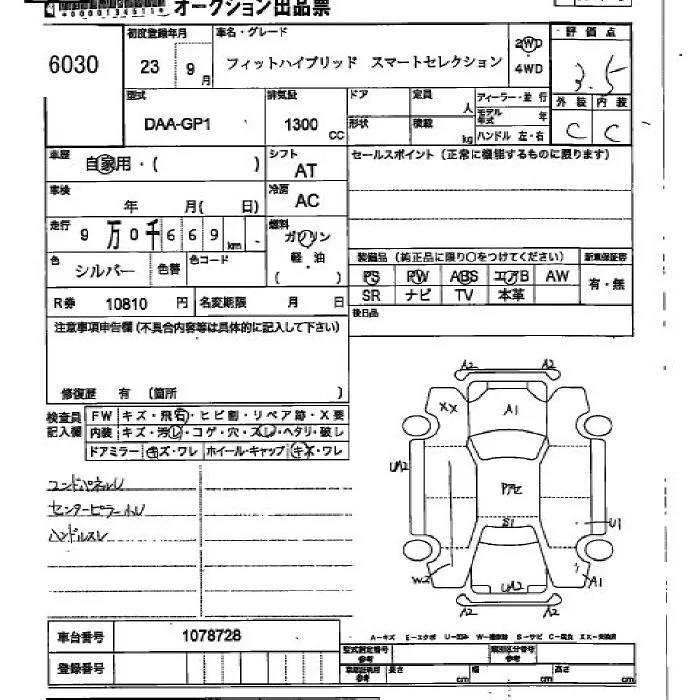 オークション出品票
*0000134511*
6030
初度登録年月 車名・グレード 評価点
23 9月 フィットハイブリッド スマートセレクション 2WD 4WD 3.5
型式 排気量 ドア 定員 人 ディーラー・並行 外装 内装
DAA-GP1 1300 CC 形状 積載 kg モデル年式 年 ハンドル 左・右 C C
車歴 自家用・( ) シフト AT セールスポイント (正常に機能するものに限ります)
車検 年 月( 日) 冷房 AC
走行 9万0千669km 燃料 ガソリン 軽・油 ( )
色 シルバー 色替 色コード
装備品 (純正品に限り○をつけてください) 新車保証書
PS PW ABS エアB AW 有・無
SR ナビ TV 本革
R券 10810 円 名変期限 月 日 後日品
注意事項申告欄 (不具合内容等は具体的に記入して下さい)
修復歴 有 (箇所 )
検査員記入欄 FW キズ・飛石・ヒビ割・リペア跡・X要
内装 キズ・汚レ・コゲ・穴・スレ・ヘタリ・破レ
ドアミラー キズ・ワレ ホイール・キャップ キズ・ワレ
センターピラー小U
ハンドルスレ
A2 A2
XX A1
UA2
S1 U1
W2 UA2 A1
A2 A2
車台番号 1078728
登録番号
A-キズ E-エクボ U-凹み W-補修跡 S-サビ C-腐食 XX-交換済
型式指定番号 参考 類別区分番号 参考
参考 長さ cm 幅 cm 高さ cm